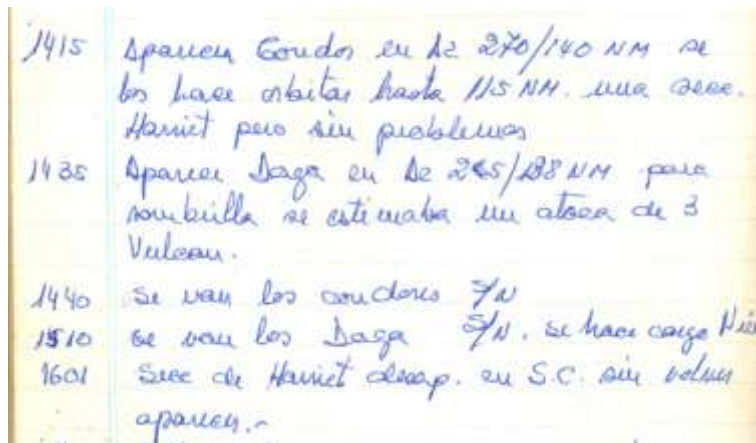 1415 Aparecen Condor en Az 270/140 NM se
los hace orbitar hasta 115 NM. una secc.
Harriet pero sin problemas
1435 Aparecen Daga en Az 265/138 NM para
sombrilla se estimaba un ataca de 3
Vulcan.
1440 Se van los condores S/N
1510 se van los Daga S/N. se hace cargo
1601 Secc de Harriet desap. en S.C. sin volver
aparecer.-